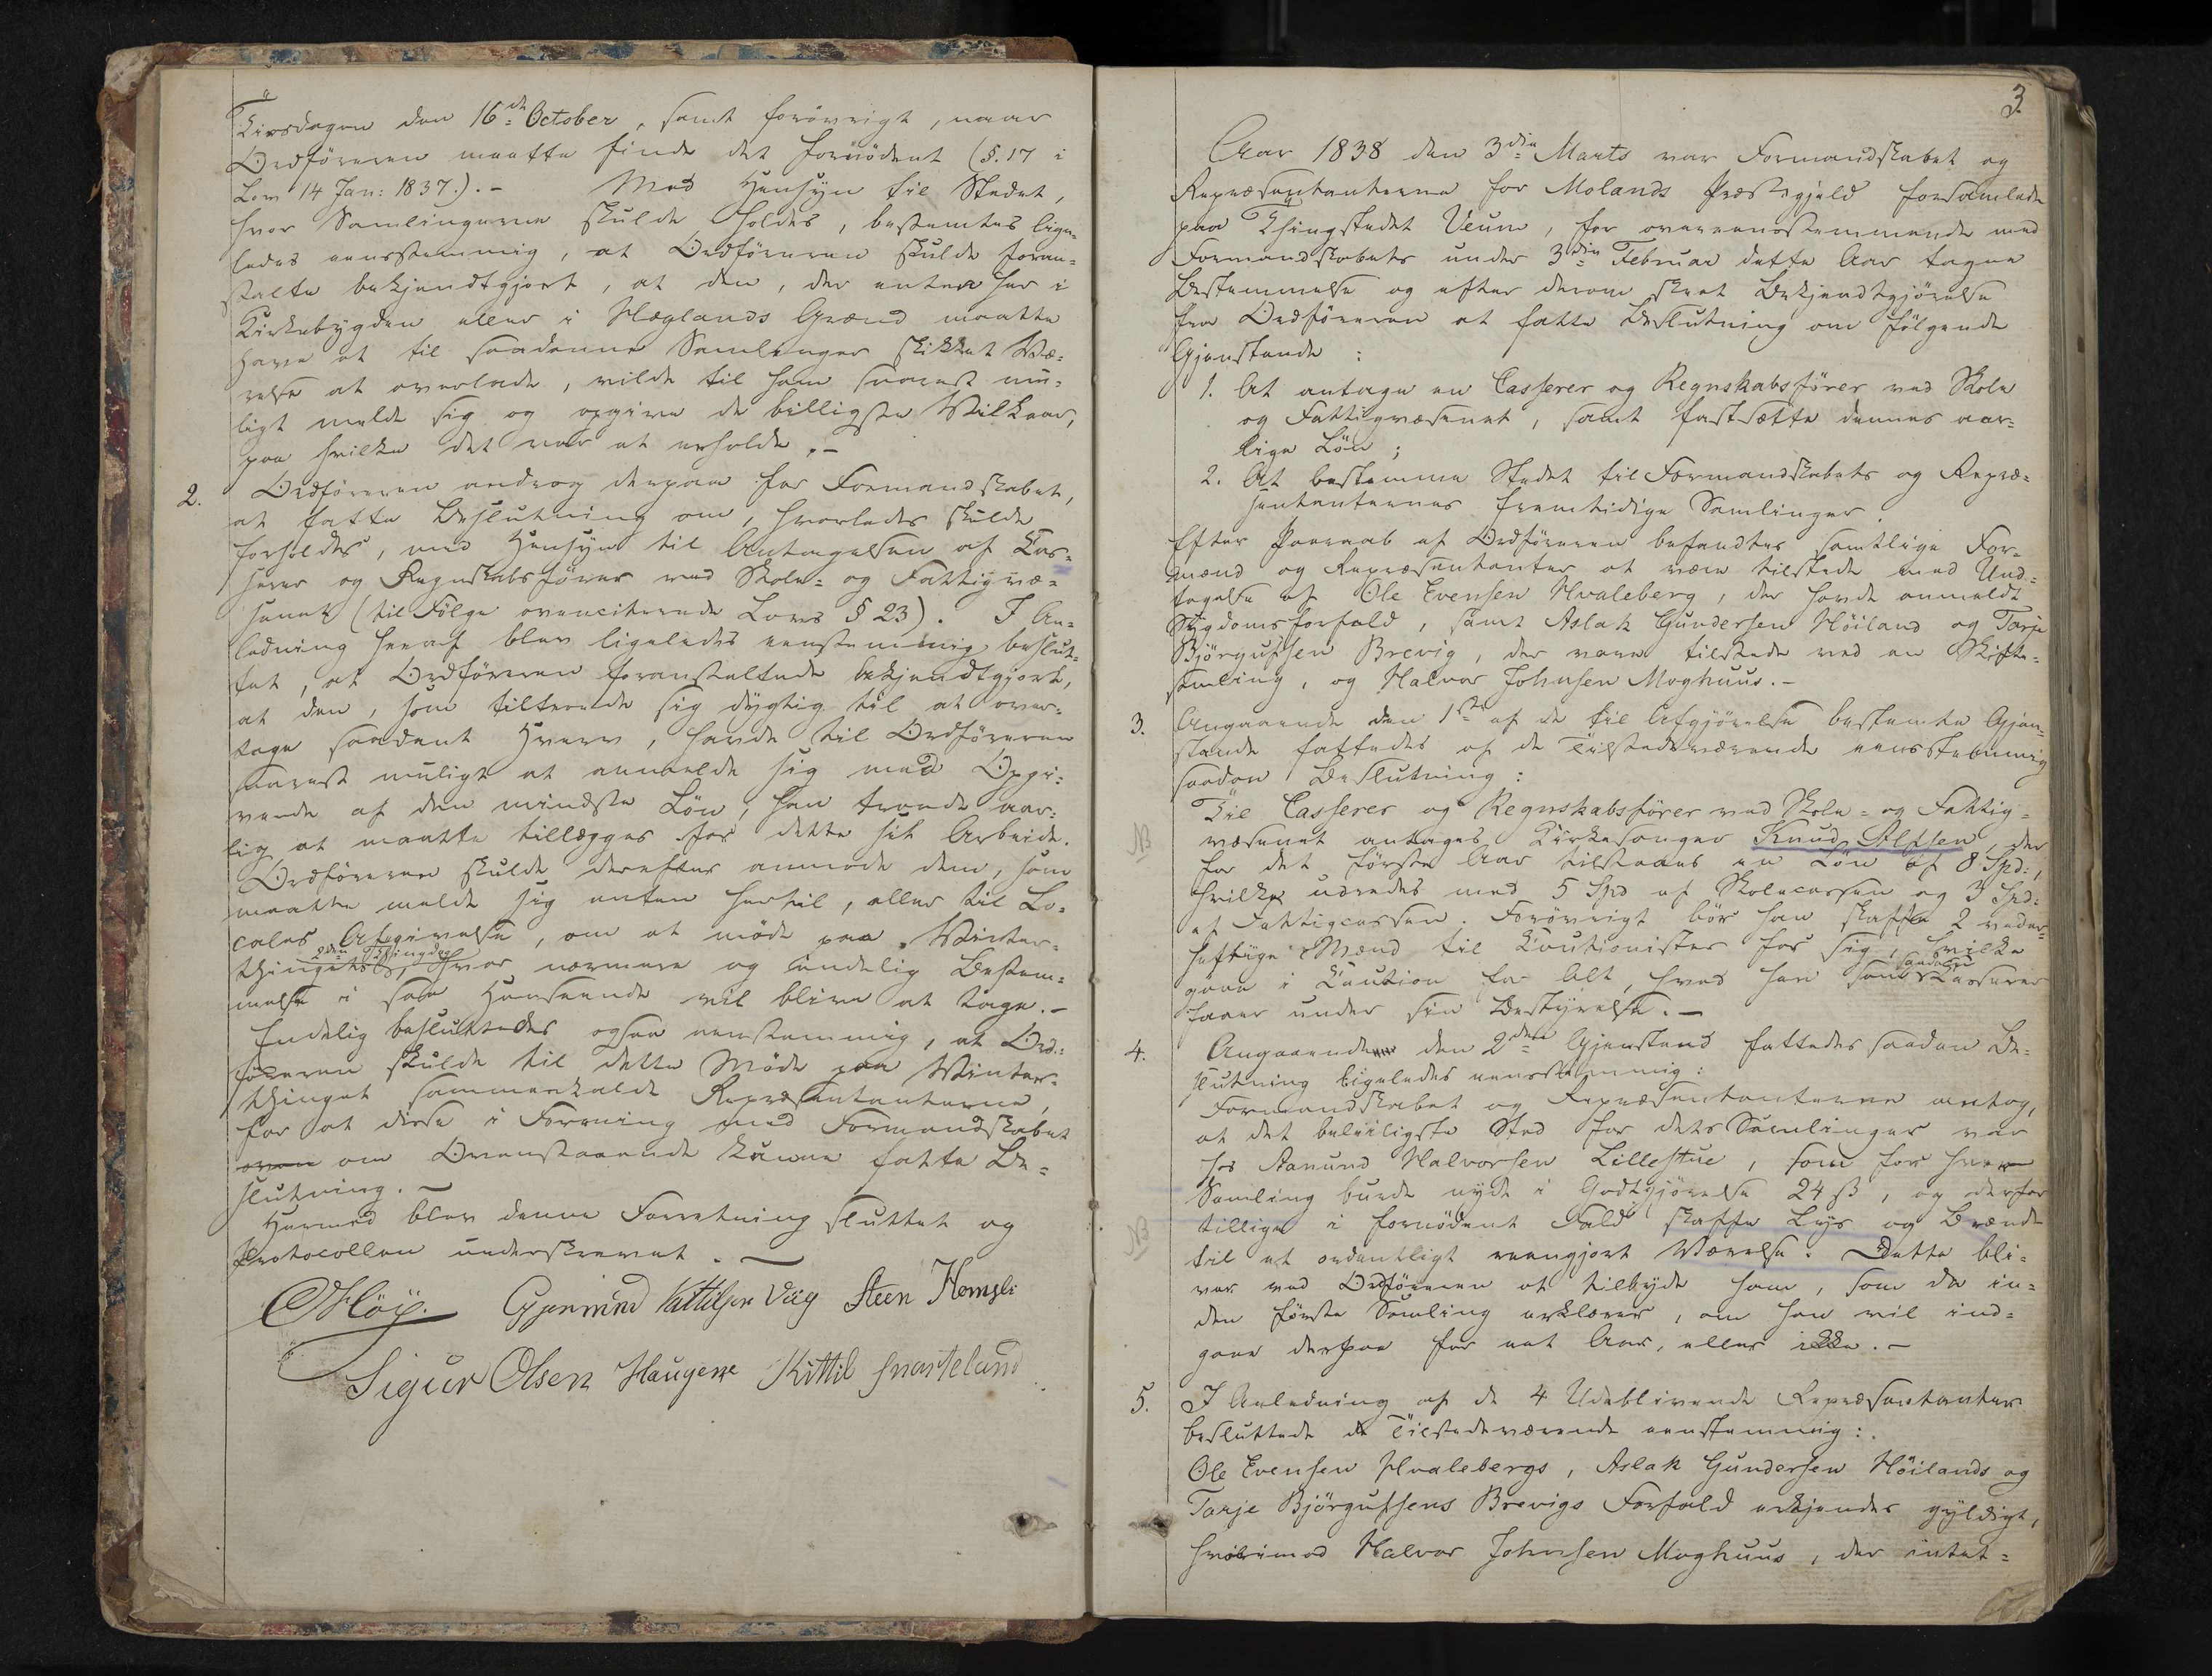 Tirsdagen den 16de October, samt forövrigt, naar
Ordföreren maatte finde det fornödent (§. 17 i
Lov 14 Jan: 1837.). – Med Hensyn til Stedet,
hvor Samlingerne skulde holdes, bestemtes lige-
ledes eensstemmig, at Ordföreren skulde foran-
stalte bekjendtgjort, at den, der enten her i
Kirkebygden eller i Hæglands Grænd maatte
have et til saadanne Samlinger skikket Væ-
relse at overlade, vilde til ham snarest mu-
ligt melde sig og opgive de billigste Vilkaar,
paa hvilke det var at erholde. –
2. Ordföreren androg derpaa for Formandskabet,
at fatte Beslutning om, hvorledes skulde
forholdes, med Hensyn til Antagelsen af Cas-
serer og Regnskabsförer ved Skole- og Fattigvæ-
senet (til Fölge ovenciterede Lovs § 23). I An-
ledning heraf blev ligeledes eenstemmig beslut-
tet, at Ordföreren foranstaltede bekjendtgjort,
at den, som tiltroede sig dygtig til at over-
tage saadant Hverv, havde til Ordföreren
snarest muligt at anmelde sig med Opgi-
vende af den mindste Lön, han troede aar-
lig at maatte tillægges for dette sit Arbeide.
Ordföreren skulde derefter anmode dem, som
maatte melde sig enten hertil, eller til Lo-
cales Afgivelse, om at möde paa Vinter-
2den Thingdag
thingets, hvor nærmere og endelig Bestem-
melse i saa Henseende vil blive at tage. –
Endelig besluttedes ogsaa eenstemmig, at Ord-
föreren skulde til dette Möde paa Vinter-
thinget sammenkalde Repræsentanterne,
for at disse i Forening med Formandskabet
oven om Ovenstaaende kunne fatte Be-
slutning. –
Hermed blev denne Forretning sluttet og
Protocollen underskrevet. –
O Höy. Gjermund Kittilsen Viig Steen Homgli
Sigur Olsen Haugene Kittil Snarteland
3
Aar 1838 den 3die Marts var Formandskabet og
Repræsentanterne for Molands Præstegjeld forsamlede
paa Thingstedet Veum, for overeensstemmende med
Formandskabets under 3die Februar dette Aar tagne
Bestemmelse og efter derom skeet Bekjendtgjörelse
fra Ordföreren at fatte Beslutning om fölgende
Gjenstande :
1. At antage en Casserer og Regnskabsförer ved Skole
og Fattigvæsenet, samt fastsætte dennes aar-
lige Lön ;
2. At bestemme Stedet til Formandskabets og Repræ-
sentanternes fremtidige Samlinger.
Efter Paaraab af Ordföreren befandtes samtlige For-
mænd og Repræsentanter at være tilstede med Und-
tagelse af Ole Evensen Hvaleberg, der havde anmeldt
Sygdomsforfald, samt Aslak Gundersen Höiland og Tarje
Björgufsen Brevig, der vare tilstede ved en Skifte-
samling, og Halvor Johnsen Moghuus. –
3. Angaaende den 1ste af de til Afgjörelse bestemte Gjen-
stande fattedes af de Tilstedeværende eensstemmig
saadan Beslutning :
Til Casserer og Regnskabsförer ved Skole- og Fattig-
NB væsenet antages Kirkesanger Knud Alfsen, der
for det förste Aar tilstaaes en Lön af 8 Spd:,
hvilke udredes med 5 Spd af Skolecassen og 3 Spd:
af Fattigcassen. Forövrigt bör han skaffe 2 veder-
heftige Mænd til Cautionister for sig, hvilke
saadan
gaae i Caution for Alt, hvad han som Casserer
faaer under sin Bestyrelse. –
4. Angaaende den 2den Gjenstand fattedes saadan Be-
slutning ligeledes eensstemmig :
Formandskabet og Repræsentanterne antog,
at det beleiligste Sted for dets Samlinger var
hos Aanund Halvorsen Lillestue, som for hver
Samling burde nyde i Godtgjörelse 24 ß, og derfor
NB tillige i fornödent Fald skaffe Lys og Brænde
til et ordentligt reengjort Værelse. Dette bli-
ver ved Ordföreren at tilbyde ham, som da in-
den förste Samling erklærer, om han vil ind-
gaae derpaa for eet Aar, eller ikke. –
5. I Anledning af de 4 Udeblivende Repræsentanter
besluttede de Tilstedeværende eenstemmig :
Ole Evensen Hvalebergs, Aslak Gundersen Höilands og
Tarje Björgufsens Brevigs Forfald erkjendes gyldigt,
hvorimod Halvor Johnsen Moghuus, der intet-